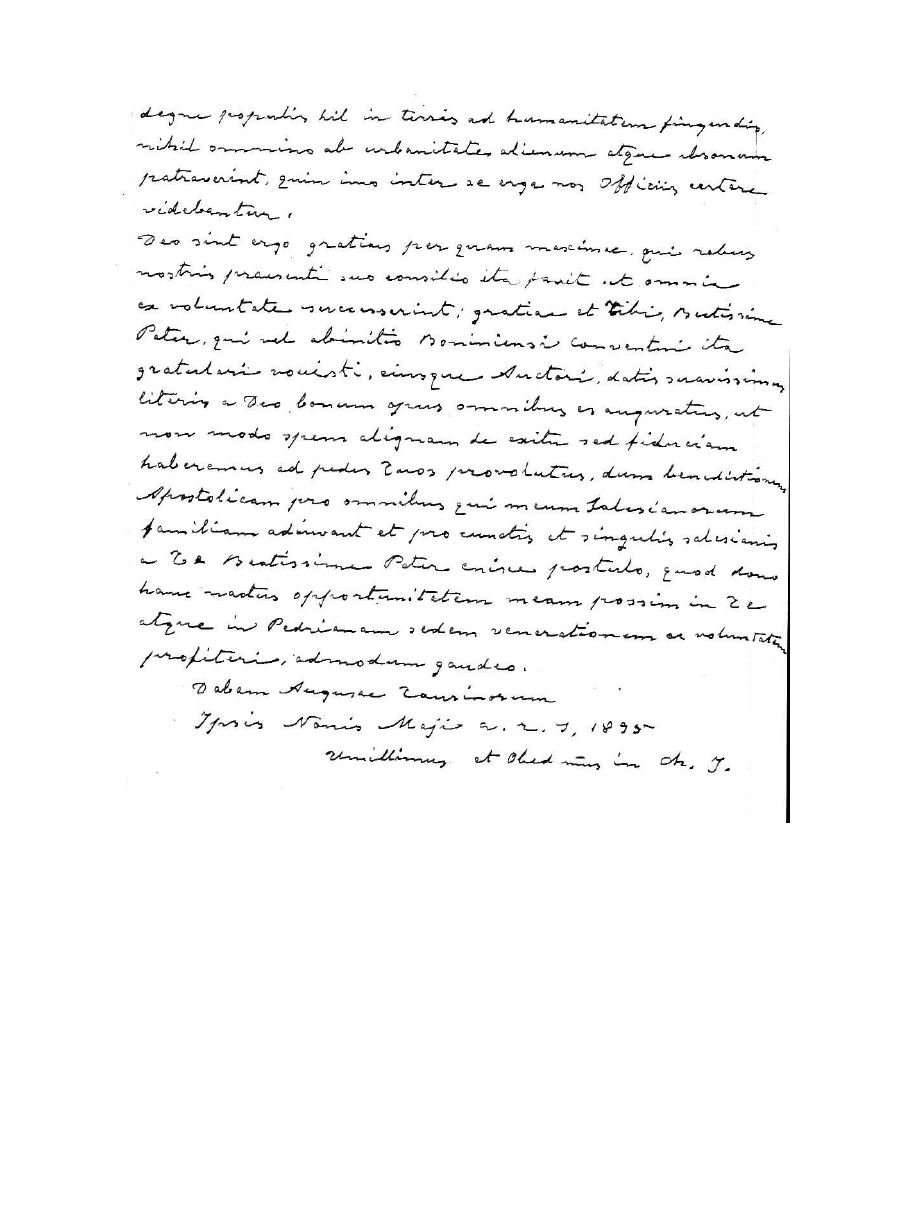 deque populis hil in terris ad humanitatem fingendis,
nihil omnino ab urbanitate alienum atque absonum
patraverint, quin imo inter se erga nos Officiis certare
videbantur.
Deo sint ergo gratias per quam maximae, qui rebus
nostris praesenti suo consilio ita favit ut omnia
ex voluntate successerint; gratiae et Tibi, Beatissime
Pater, qui vel abinitio Boniniensi Conventui ita
gratulari novisti, eiusque Auctori, datis suavissimis
literis a Deo bonum opus omnibus es auguratus, ut
non modo spem aliquam de exitu sed fiduciam
haberemus ad pedes Tuos provolutus, dum benedictionem
Apostolicam pro omnibus qui meum Salesianorum
familiam adiuvant et pro cunctis et singulis salesianis
a Te Beatissime Pater enixe postulo, quod dono
hanc nactus opportunitatem meam possim in Te
atque in Pedrianam sedem venerationem ac voluntatem
profiteri, admodum gaudeo.
Dabam Augusae Taurinorum
Ipsis Nonis Maji a. r. s, 1895
Umillimus et Obed mus in Ch. J.